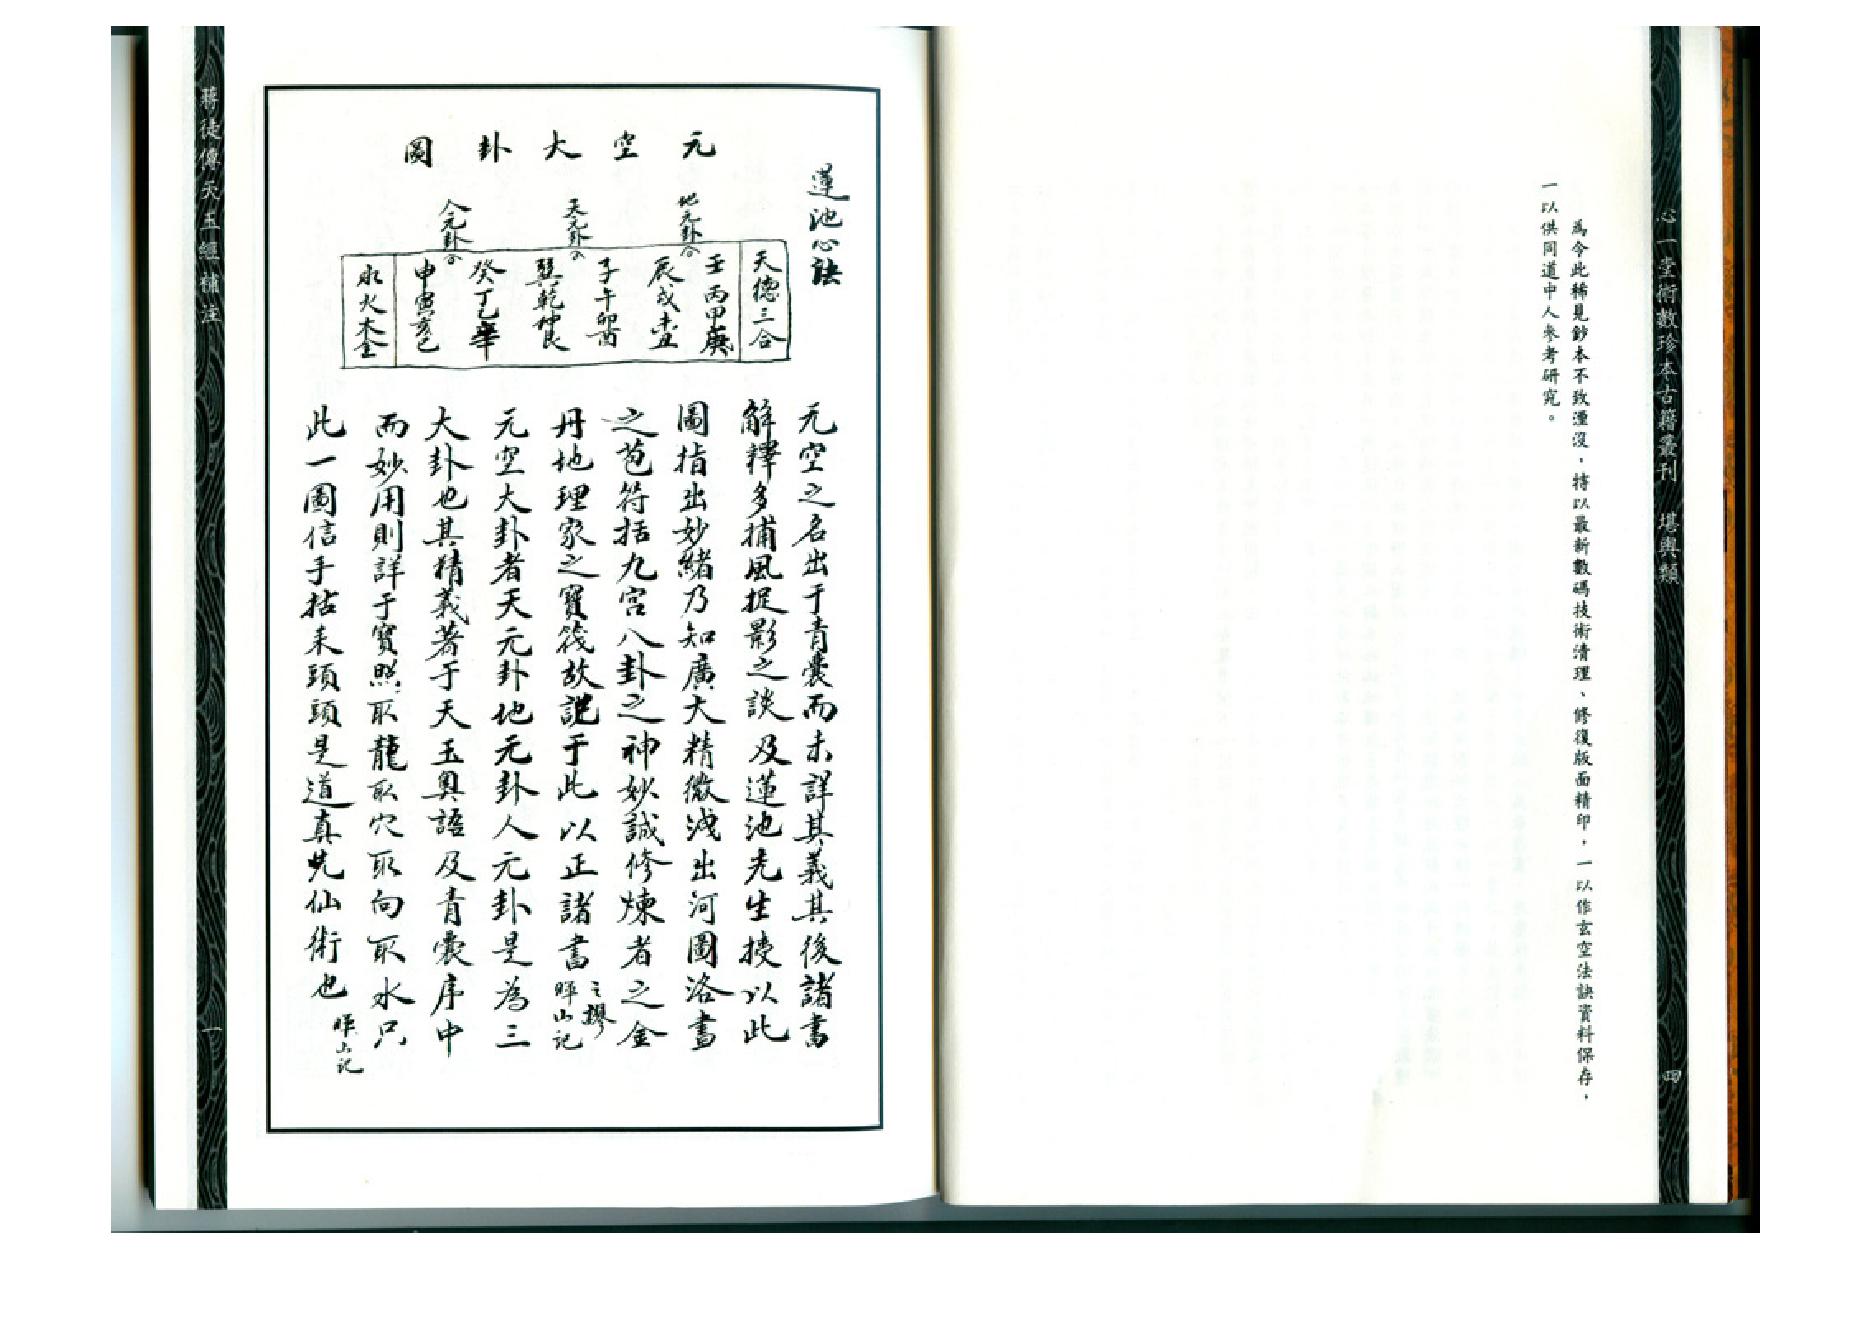 心一堂術數珍本古籍叢刊 堪輿類
四
為令此稀見鈔本不致湮沒，特以最新數碼技術清理、修復版面精印，一以作玄空法訣資料保存，
一以供同道中人參考研究。
蓮池心訣
元空大卦圖
地元卦合
天元卦合
人元卦合
天德三合
壬丙甲庚
辰戌未丑
子午卯酉
巽乾坤艮
癸丁乙辛
申寅亥巳
水火木金
元空之名出于青囊而未詳其義其後諸書
解釋多捕風捉影之談及蓮池先生授以此
圖指出妙緒乃知廣大精微淺出河圖洛書
之苞符括九宮八卦之神妙誠修煉者之金
丹地理家之寶筏故記于此以正諸書之謬 暉山記
元空大卦者天元卦地元卦人元卦是為三
大卦也其精義著于天玉奧語及青囊序中
而妙用則詳于寶照取龍取穴取向取水只
此一圖信手拈來頭頭是道真光仙術也 暉山記
蔣徒傳天玉經補注
一